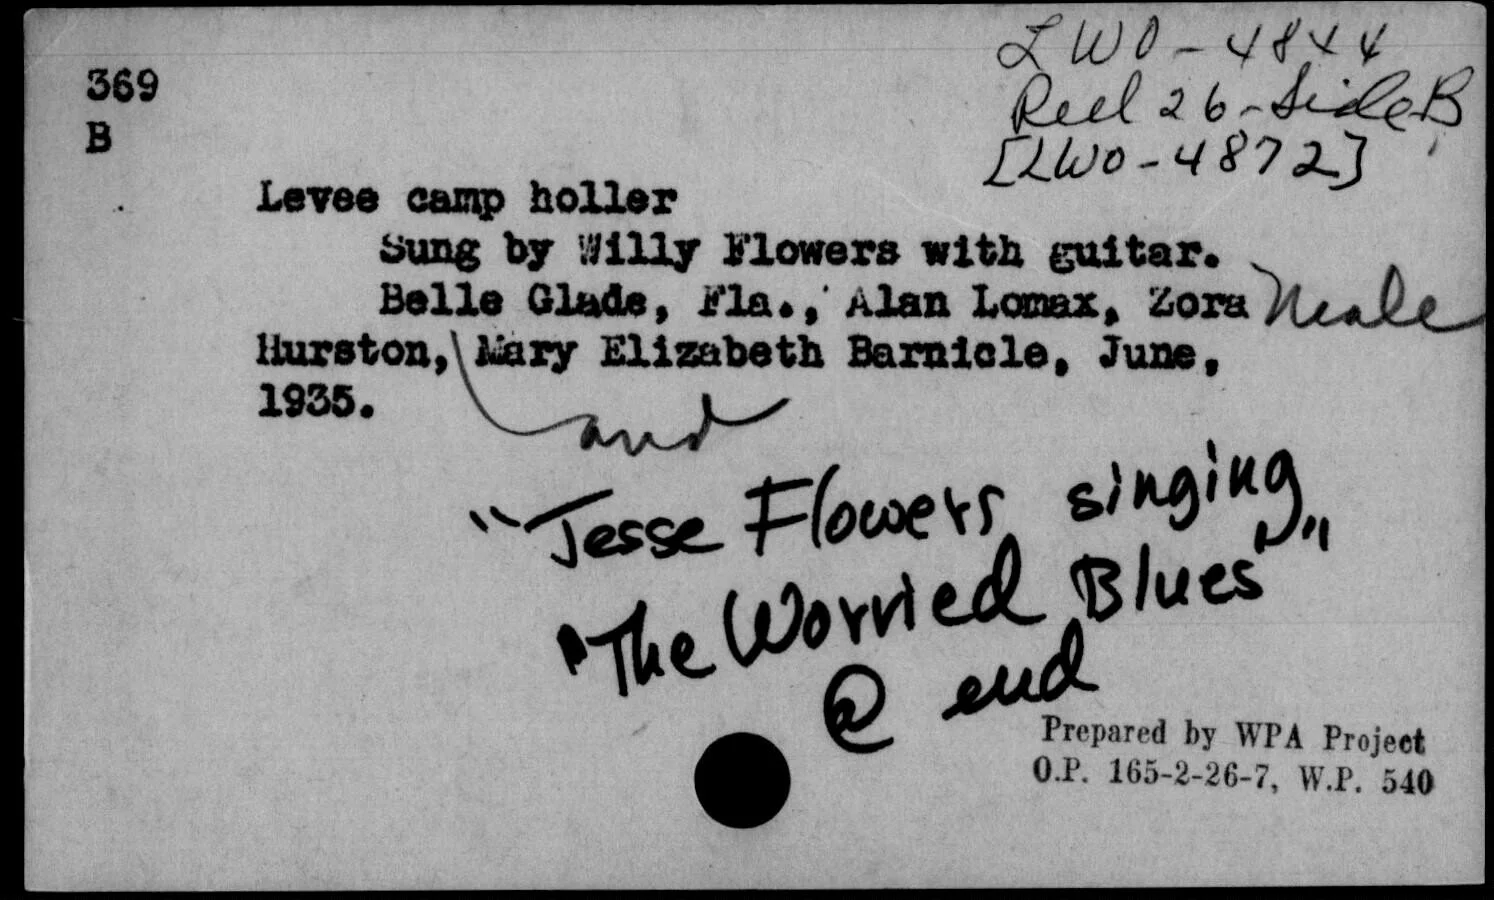 LWO-4844
Reel 26-Side B
[LWO-4872]
369
B
Levee camp holler
Sung by Willy Flowers with guitar.
Belle Glade, Fla., Alan Lomax, Zora Neale
Hurston, Mary Elizabeth Barnicle, June,
1935.
and
"Jesse Flowers singing
"The Worried Blues""
@ end
Prepared by WPA Project
O.P. 165-2-26-7, W.P. 540